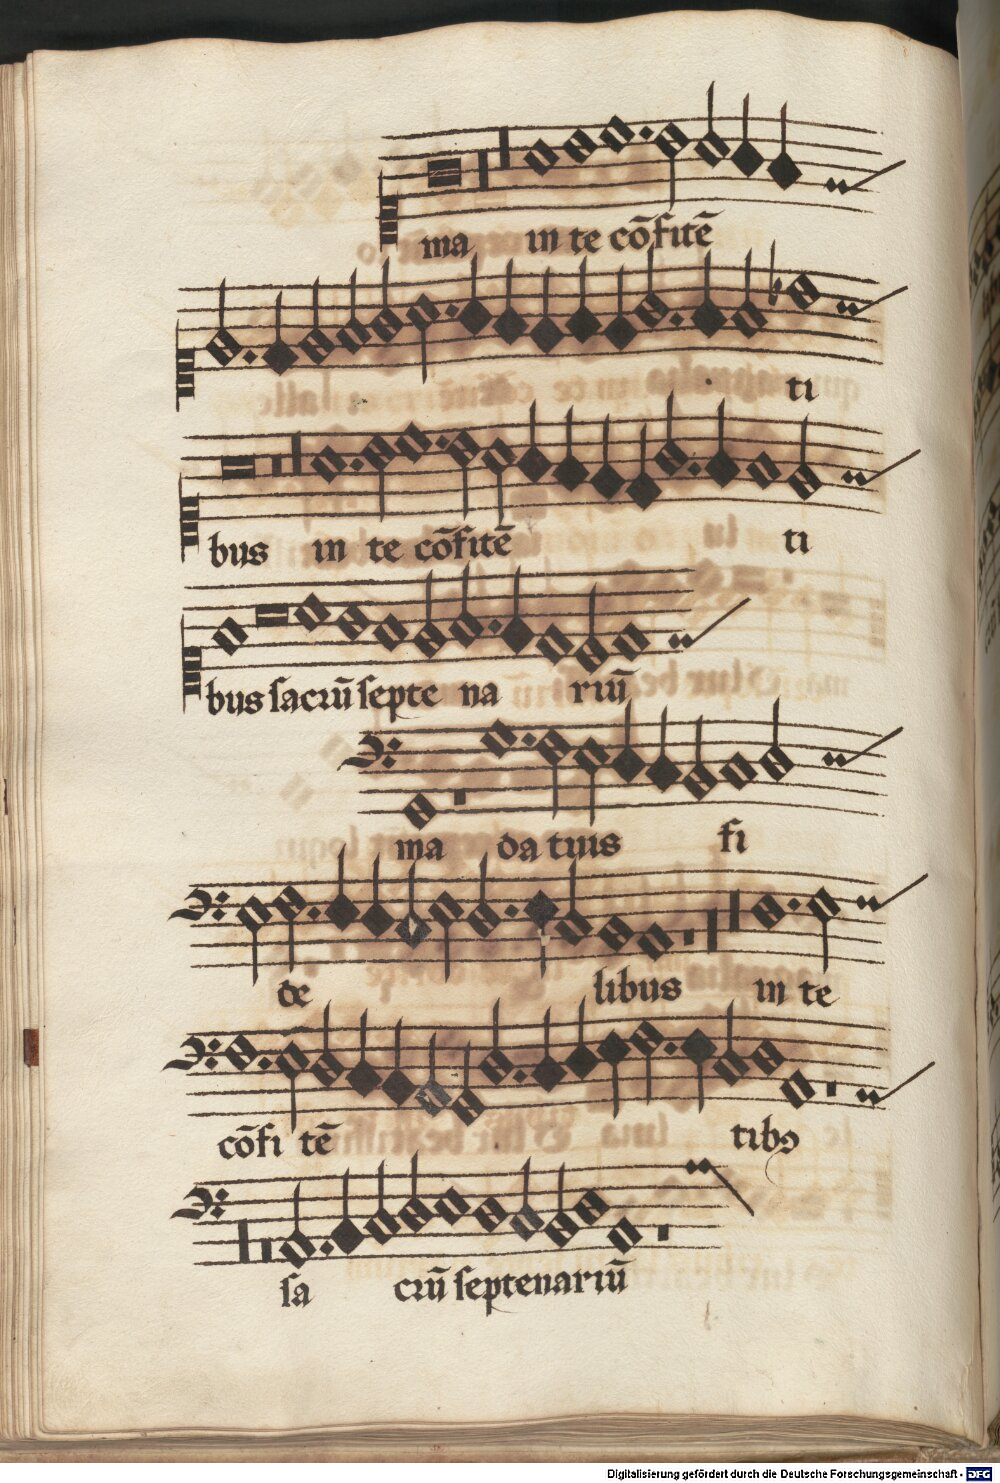 ma in te cõfitẽ
ti
bus in te cõfitẽ ti
bus sacrũ septe na riũ
ma da tuis fi
de libus in te
cõfi tẽ tibꝯ
sa crũ septenariũ
Digitalisierung gefördert durch die Deutsche Forschungsgemeinschaft - DFG